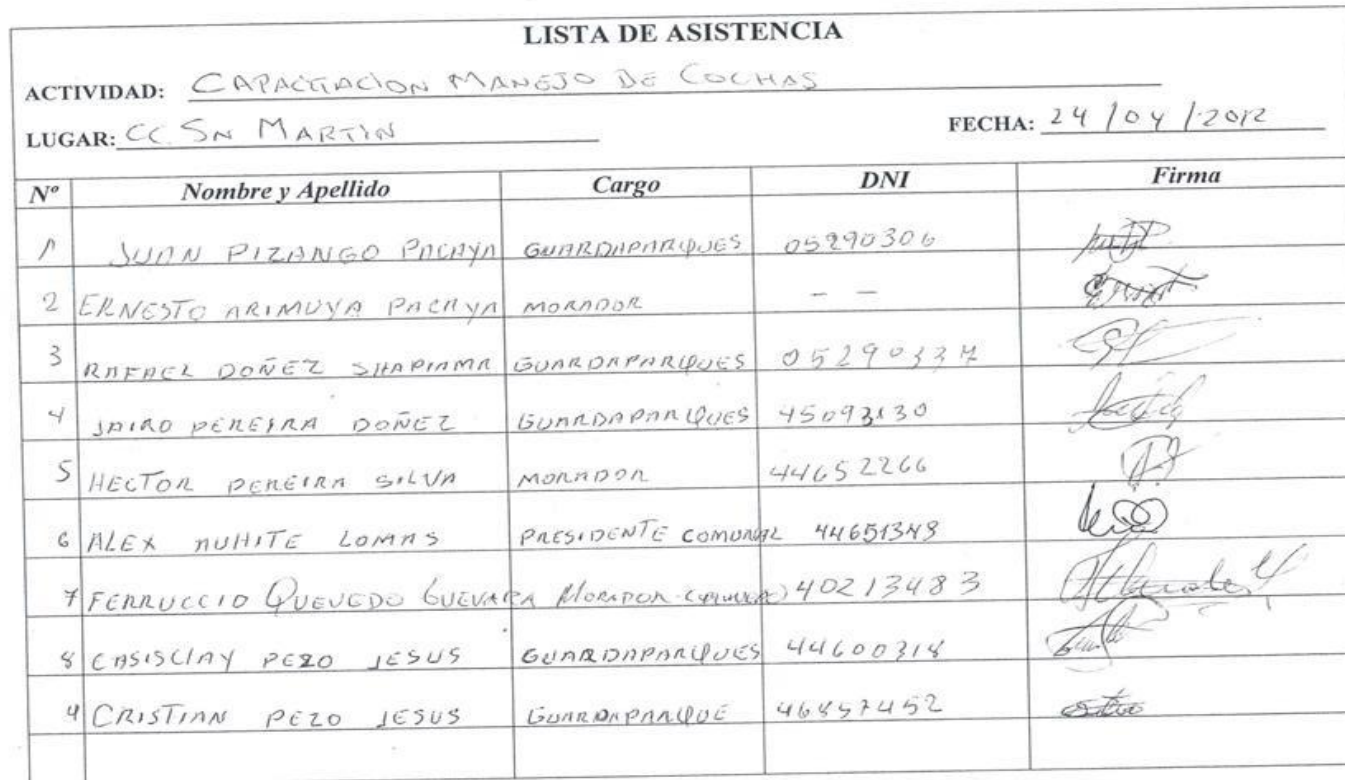 LISTA DE ASISTENCIA
ACTIVIDAD: CAPACITACION MANEJO DE COCHAS
LUGAR: CC. SN MARTIN FECHA: 24/04/2012
Nº Nombre y Apellido Cargo DNI Firma
1 JUAN PIZANGO PACAYA GUARDAPARQUES 05290306
2 ERNESTO ARIMUYA PACAYA MORADOR - -
3 RAFAEL DOÑEZ SHAPIAMA GUARDAPARQUES
4 JAIRO PEREIRA DOÑEZ GUARDAPARQUES 45093130
5 HECTOR PEREIRA SILVA MORADOR 44652266
6 ALEX AUHITE LOMAS PRESIDENTE COMUNAL 44651348
7 FERRUCCIO QUEVEDO GUEVARA MORADOR 40213483
8 CASISCLAY PEZO JESUS GUARDAPARQUES 44600318
9 CRISTIAN PEZO JESUS GUARDAPARQUE 46857452